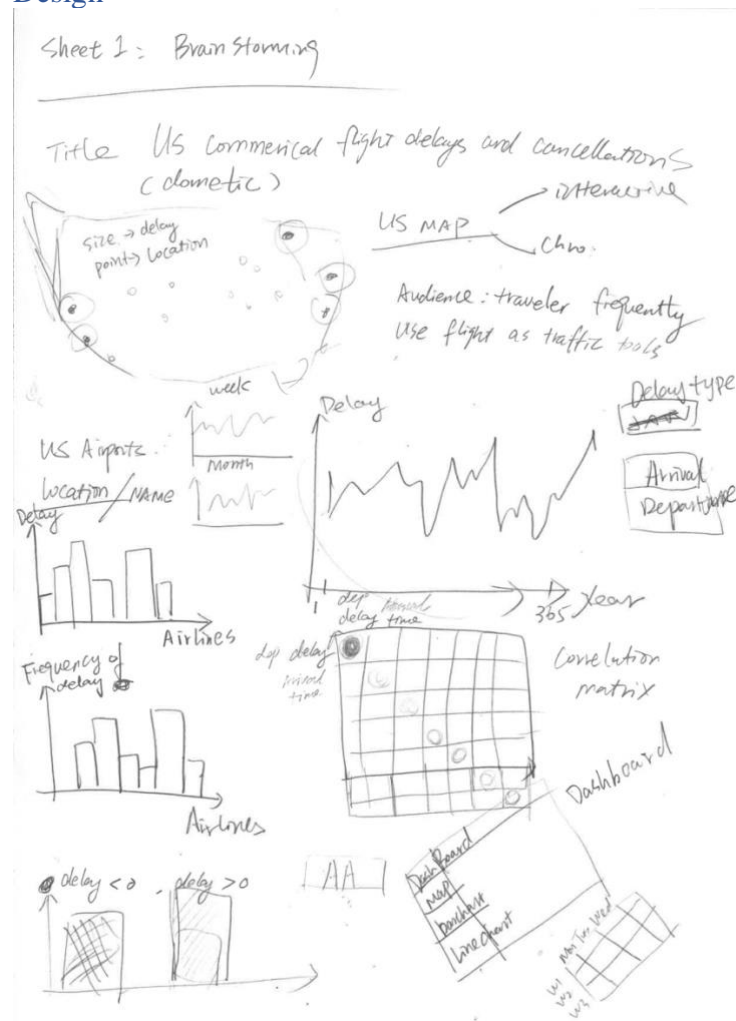 Design
Sheet 1: Brain Storming
Title US commerical flight delays and cancellations
(dometic)
size → delay
point → location
US MAP
interactive
Chro.
Audience: traveler frequently
use flight as traffic tools
week
Month
US Airports
Location / NAME
Delay
Airlines
Delay
1
365 year
Delay type
Arrival
Departure
Frequency of
delay
Airlines
dep
delay time
dep delay
time
Correlation
matrix
delay < 0
delay > 0
AA
Dashboard
DashBoard
Map
barchart
line chart
Mon Tue Wed
W1
W2
W3